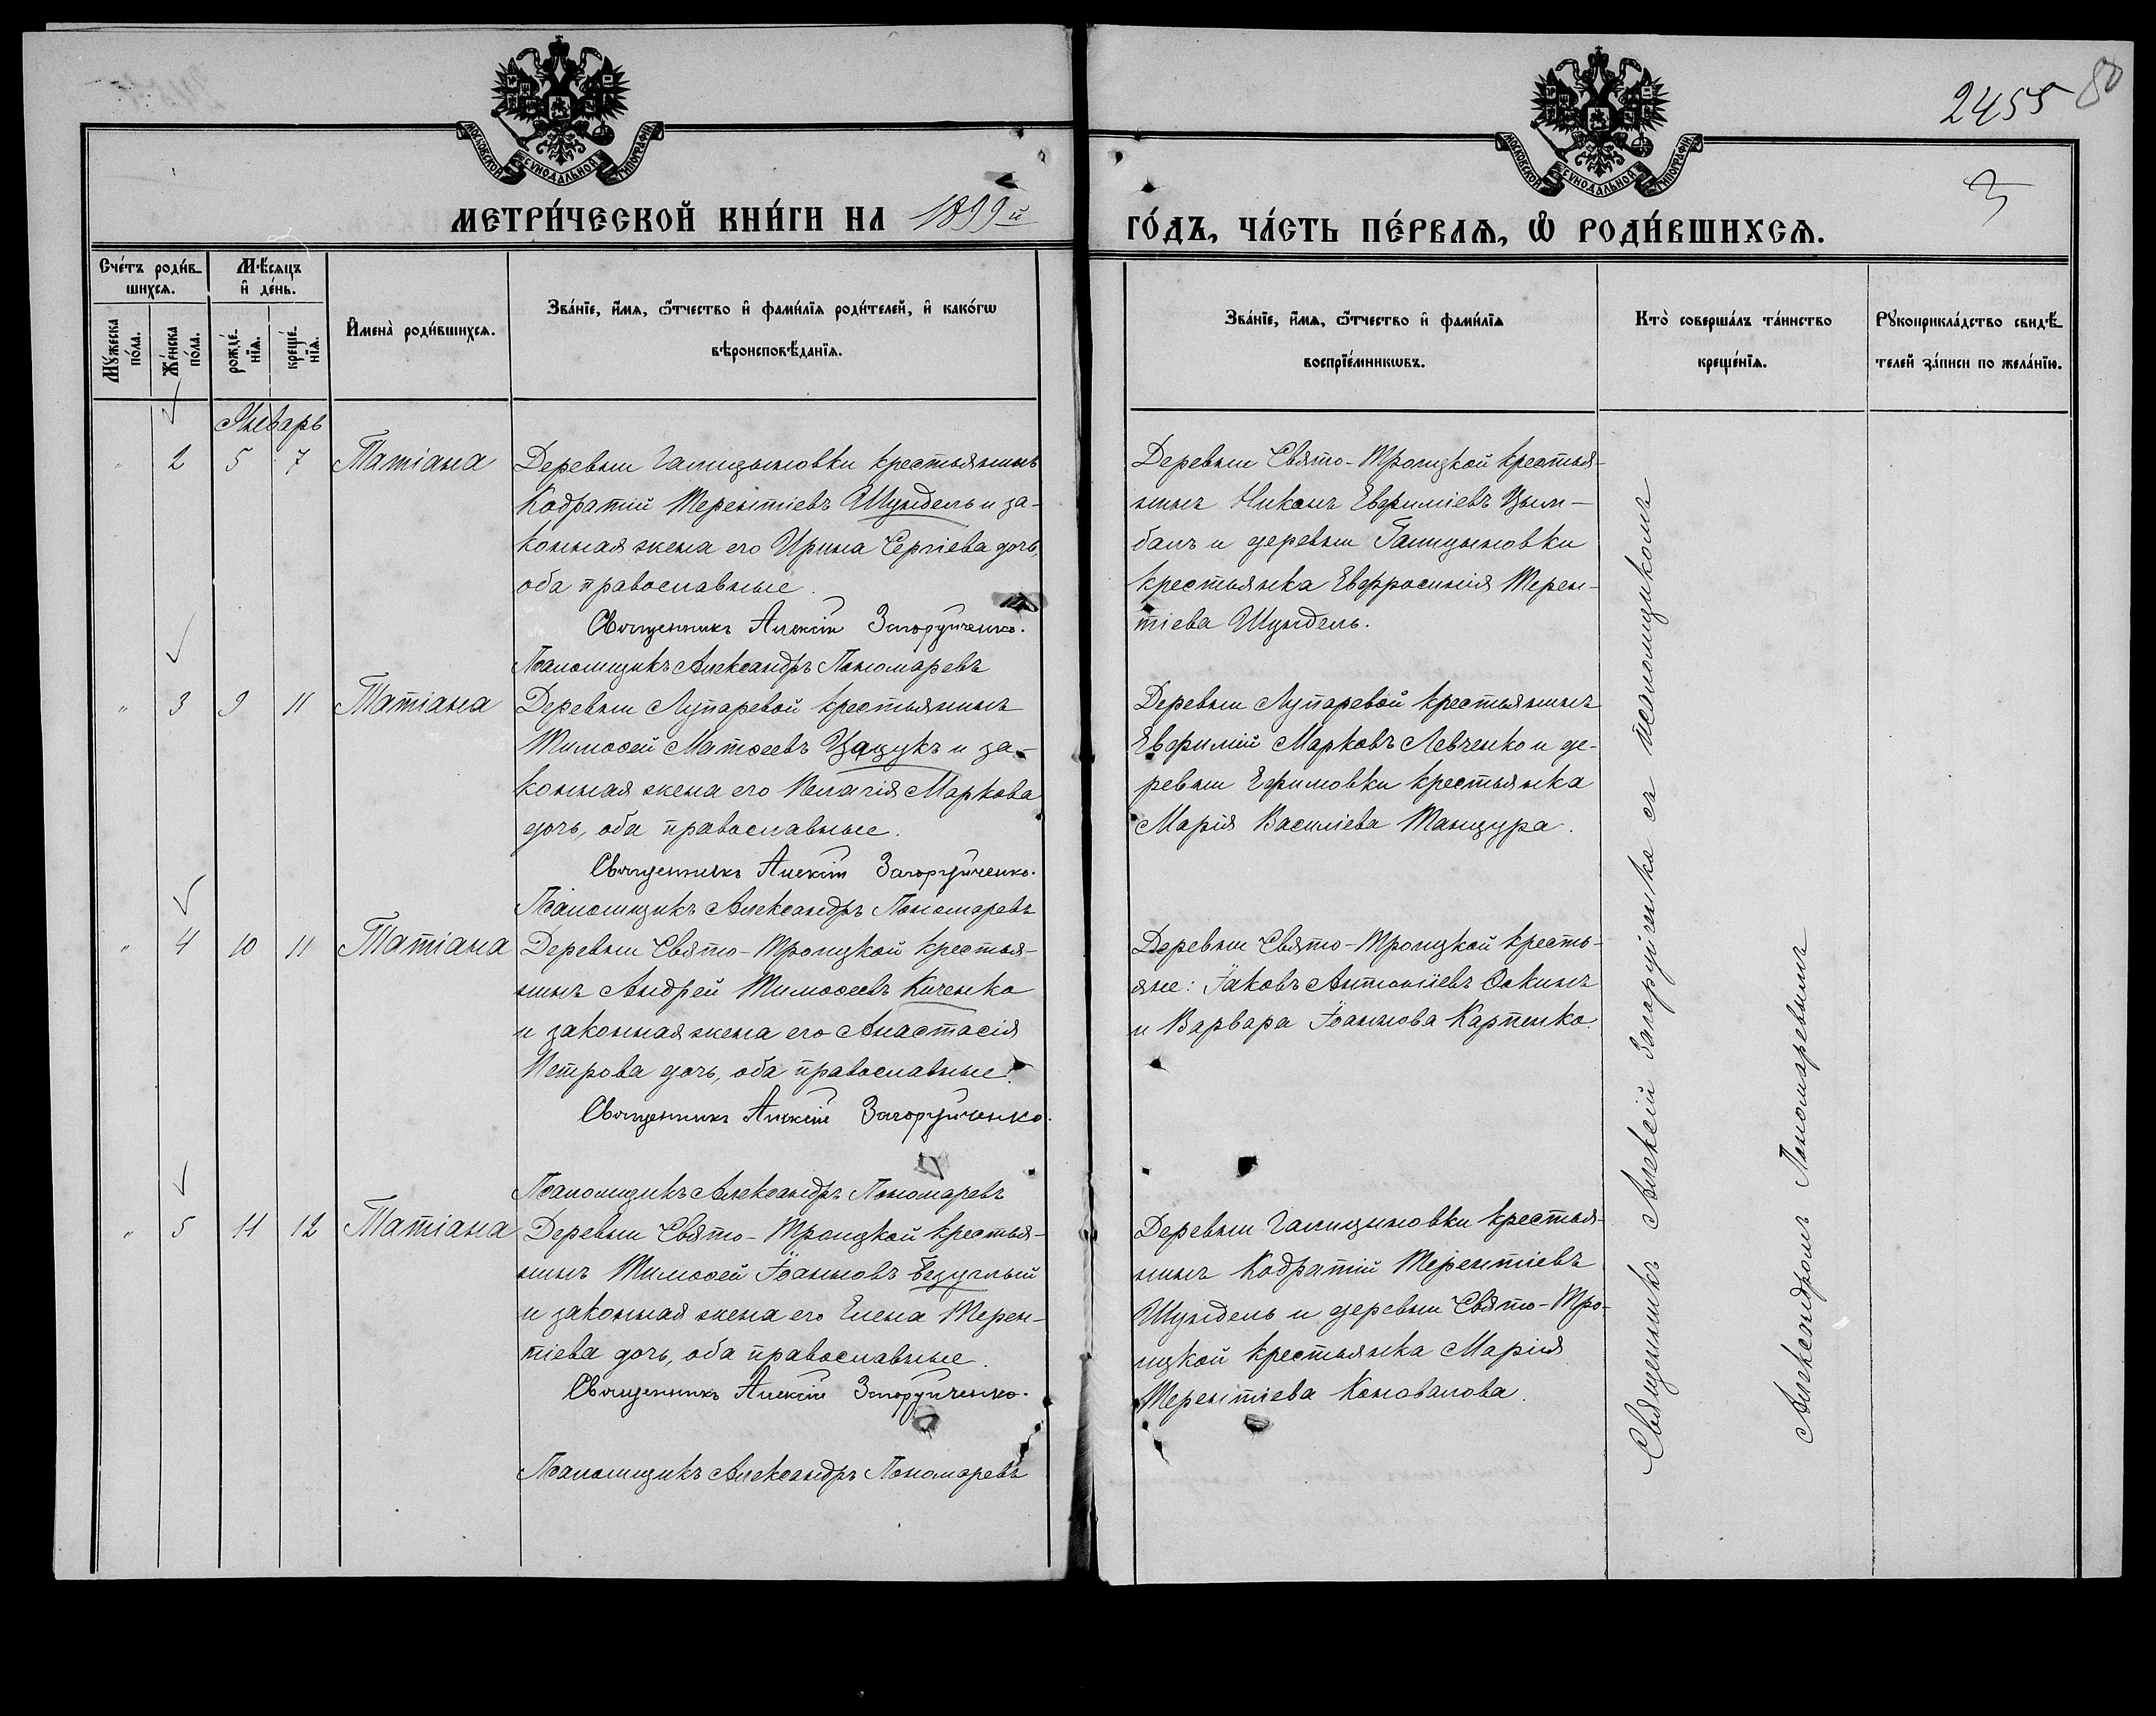 2455 80
МОСКОВСКОЙ СѴНОДАЛЬНОЙ ТИПОГРАФІИ
МОСКОВСКОЙ СѴНОДАЛЬНОЙ ТИПОГРАФІИ
3
МЕТРИ́ЧЕСКОЙ КНИ́ГИ НА 1899й
ГО́ДЪ, ЧА́СТЬ ПЕ́РВАѦ, Ѡ҆ РОДИ́ВШИХСѦ.
Сче́тъ роди́в-
шихсѧ.
Мꙋ́жеска по́ла.
Же́нска по́ла.
Мѣ́сѧцъ
и҆ де́нь.
рожде́-
нїѧ.
креще́-
нїѧ.
И҆мена̀ роди́вшихсѧ.
Зва́нїе, и҆́мѧ, ѻ҆́тчество и҆ фами́лїѧ роди́телей, и҆ како́гѡ
вѣроисповѣ́данїѧ.
Зва́нїе, и҆́мѧ, ѻ҆́тчество и҆ фами́лїѧ
воспрїе́мникѡвъ.
Кто̀ соверша́лъ та́инство
креще́нїѧ.
Рꙋкоприкла́дство свидѣ́-
телей за́писи по жела́нїю.
Январь
" 2 5 7 Татіана
Деревни Галицыновки крестьянинъ
Кодратій Терентіевъ Шундель и за-
конная жена его Ирина Сергіева дочь,
оба православные.
Священникъ Алексій Загоруйченко.
Псаломщикъ Александръ Пономаревъ
Деревни Свято-Троицкой крестья-
нинъ Никонъ Евфиміевъ Цым-
балъ и деревни Галицыновки
крестьянка Евфросинія Терен-
тіева Шундель.
" 3 9 11 Татіана
Деревни Лупаревой крестьянинъ
Тимоѳей Матѳеевъ Цацукъ и за-
конная жена его Пелагія Маркова
дочь, оба православные.
Священникъ Алексій Загоруйченко.
Псаломщикъ Александръ Пономаревъ
Деревни Лупаревой крестьянинъ
Евфимій Марковъ Левченко и де-
ревни Ефимовки крестьянка
Марія Василіева Танцура.
" 4 10 11 Татіана
Деревни Свято-Троицкой крестья-
нинъ Андрей Тимоѳеевъ Киченко
и законная жена его Анастасія
Петрова дочь, оба православные.
Священникъ Алексій Загоруйченко.
Псаломщикъ Александръ Пономаревъ
Деревни Свято-Троицкой кресть-
яне: Іаковъ Антоніевъ
и Варвара Іоаннова Карпенко.
" 5 11 12 Татіана
Деревни Свято-Троицкой крестья-
нинъ Тимоѳей Іоанновъ Безуглый
и законная жена его Елена Терен-
тіева дочь, оба православные.
Священникъ Алексій Загоруйченко.
Псаломщикъ Александръ Пономаревъ
Деревни Галицыновки крестья-
нинъ Кодратій Терентіевъ
Шундель и деревни Свято-Тро-
ицкой крестьянка Марія
Терентіева Коновалова.
Священникъ Алексій Загоруйченко съ псаломщикомъ
Александромъ Пономаревымъ